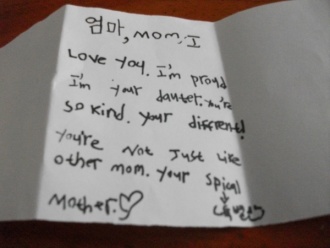 엄마, mom. I
Love you. I'm proud
I'm your dauter. You're
so kind. your different!
You're not just like
other mom. your spical
Mother.♡